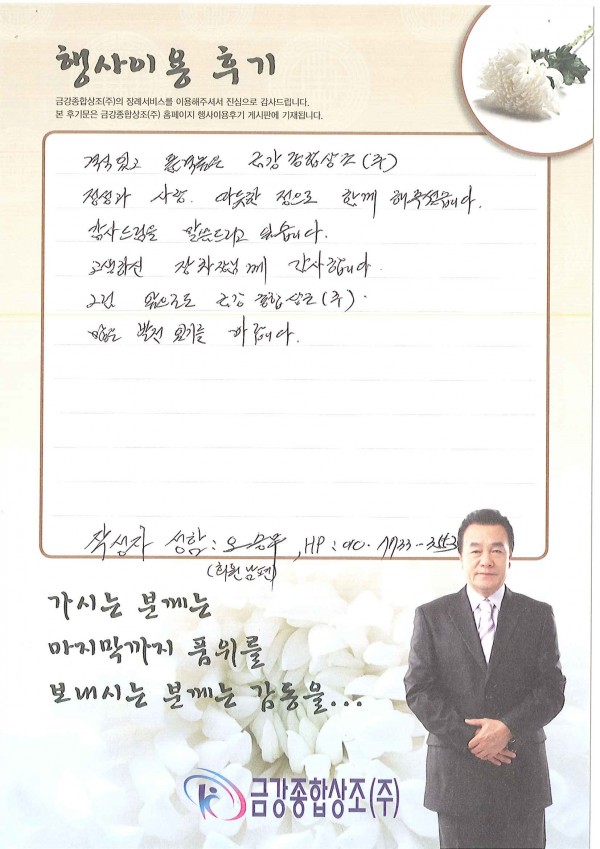 행사이용 후기
금강종합상조(주)의 장례서비스를 이용해주셔서 진심으로 감사드립니다.
본 후기문은 금강종합상조(주) 홈페이지 행사이용후기 게시판에 기재됩니다.
격식있고 품격높은 금강종합상조(주)
정성과 사랑. 따뜻한 정으로 함께 해주셨습니다.
감사드림을 말씀드리고 있습니다.
고생하신 장차장님께 감사합니다.
앞으로도 금강종합상조(주)
많은 발전 있기를 바랍니다.
작성자 성함: 오, HP:
(회원 남편)
가시는 분께는
마지막까지 품위를
보내시는 분께는 감동을...
금강종합상조(주)